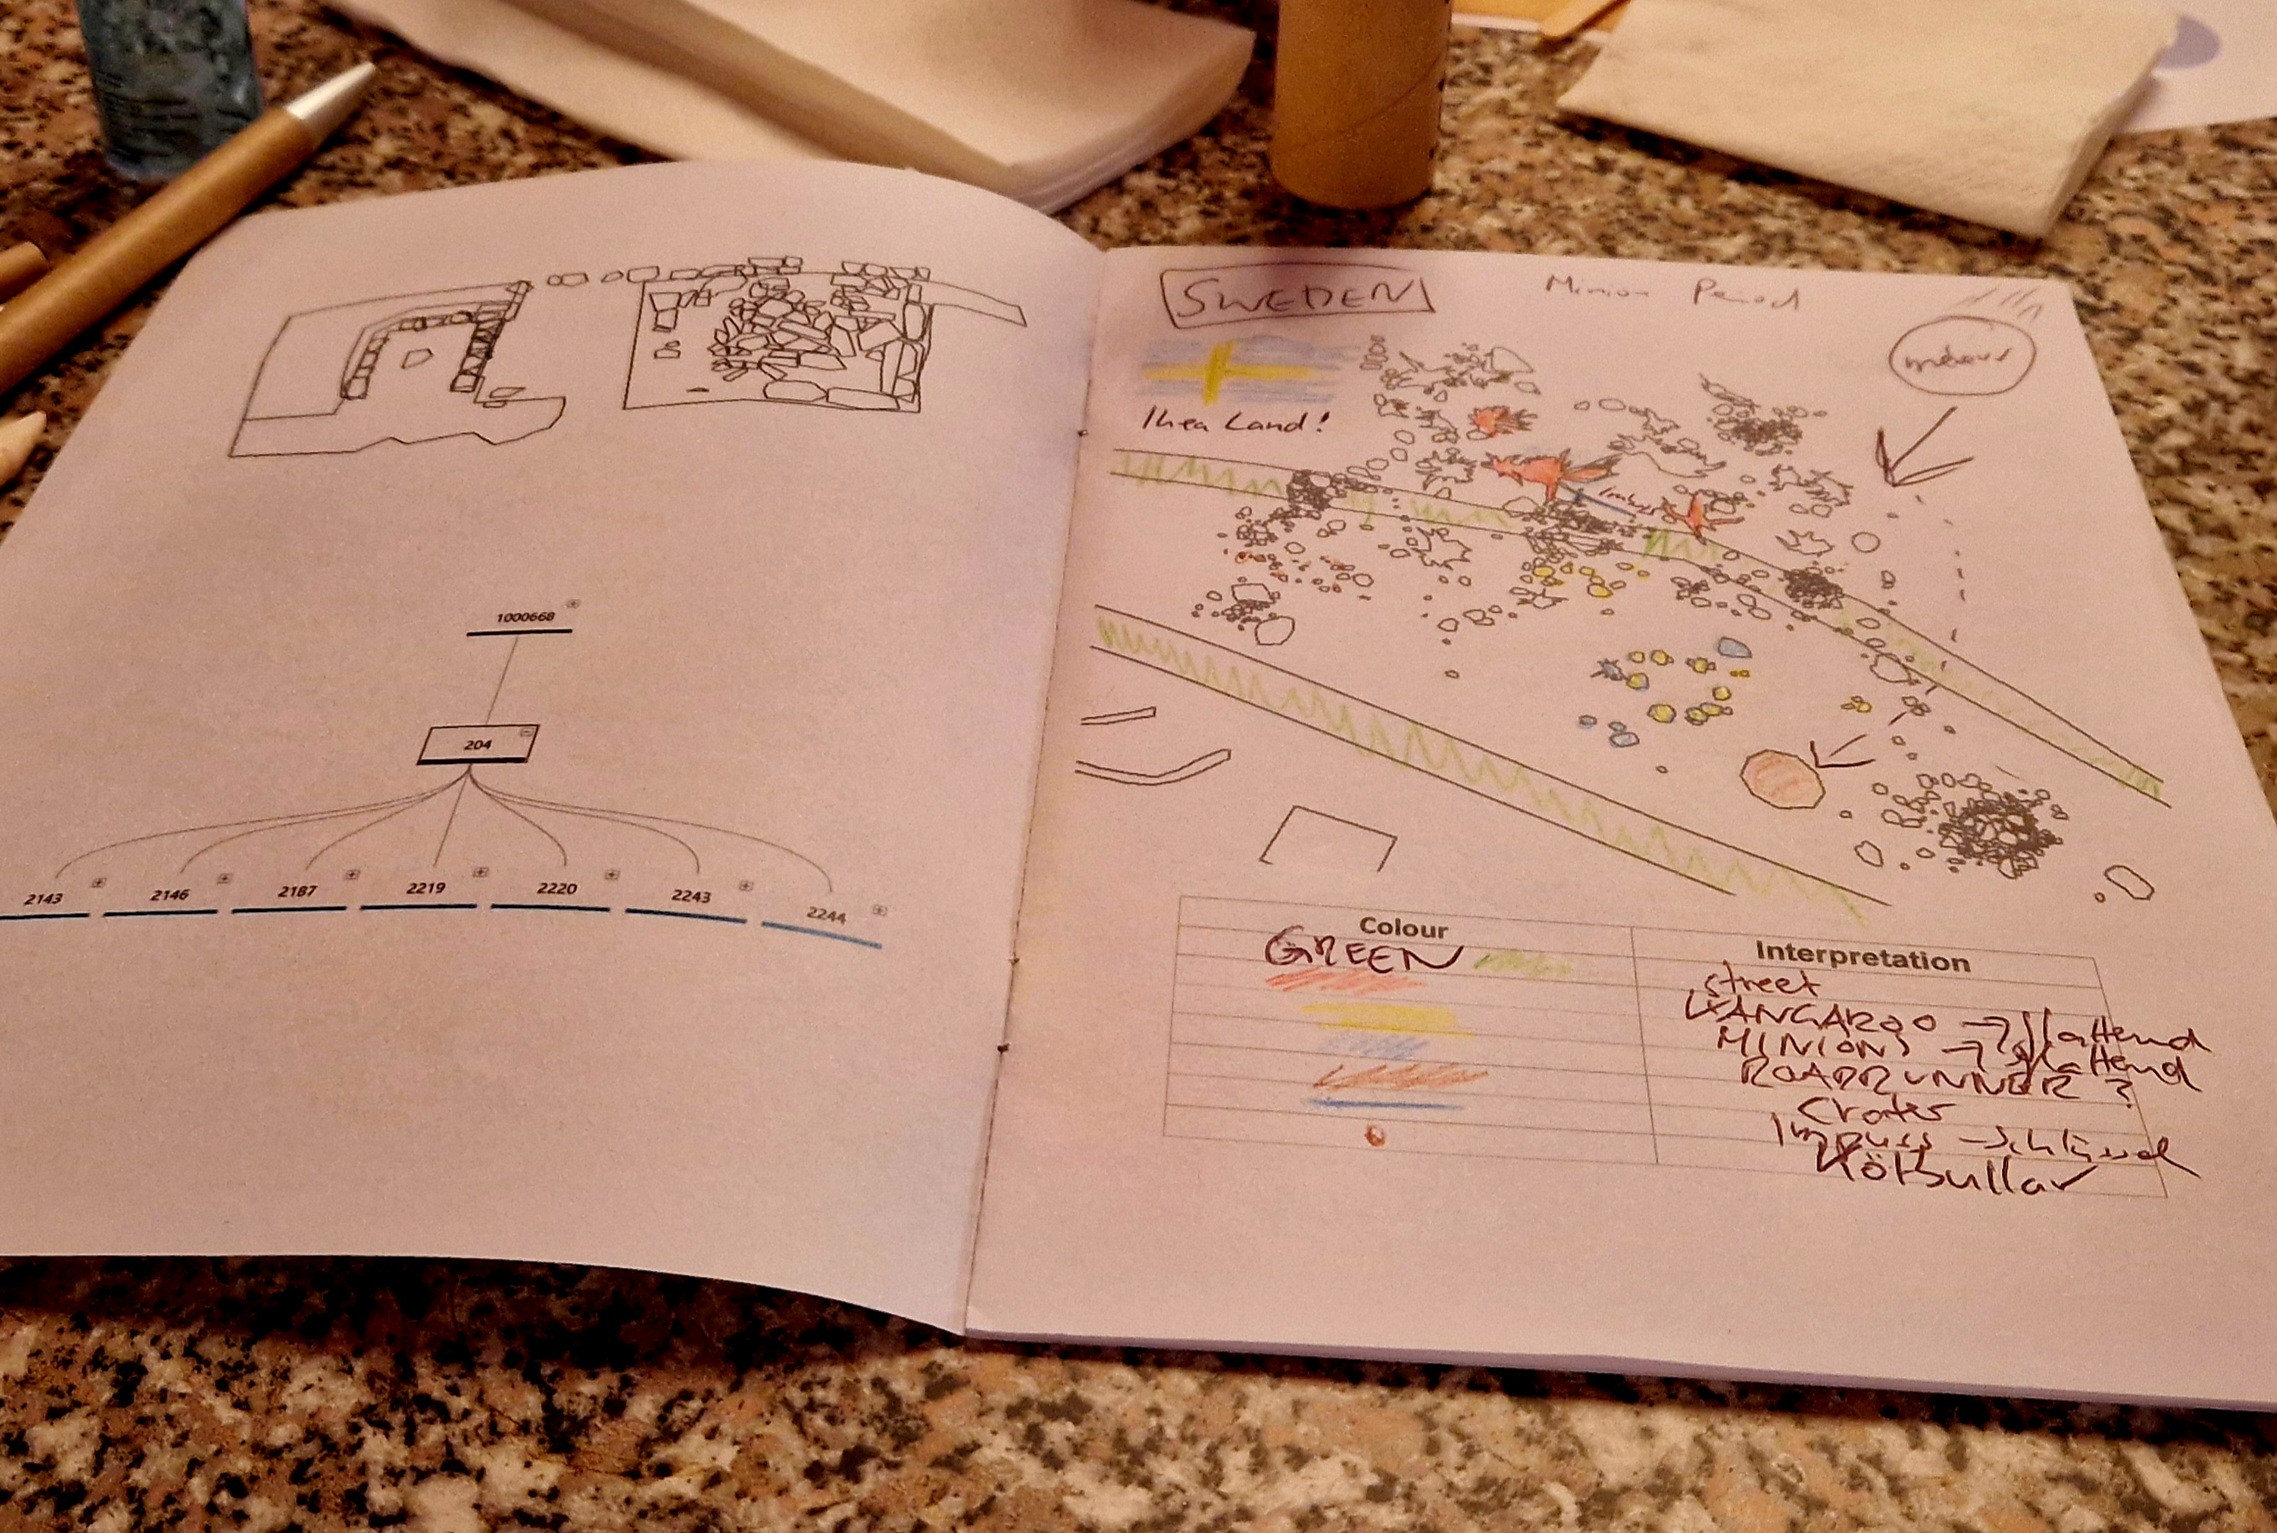 1000668
204
2143 2146 2187 2219 2220 2243 2244
SWEDEN
Minion Period
Ikea Land!
Imbus
Colour Interpretation
GREEN street
KANGAROO → flattend
MINIONS → flattend
ROADRUNNER ?
Crater
Köttbullar